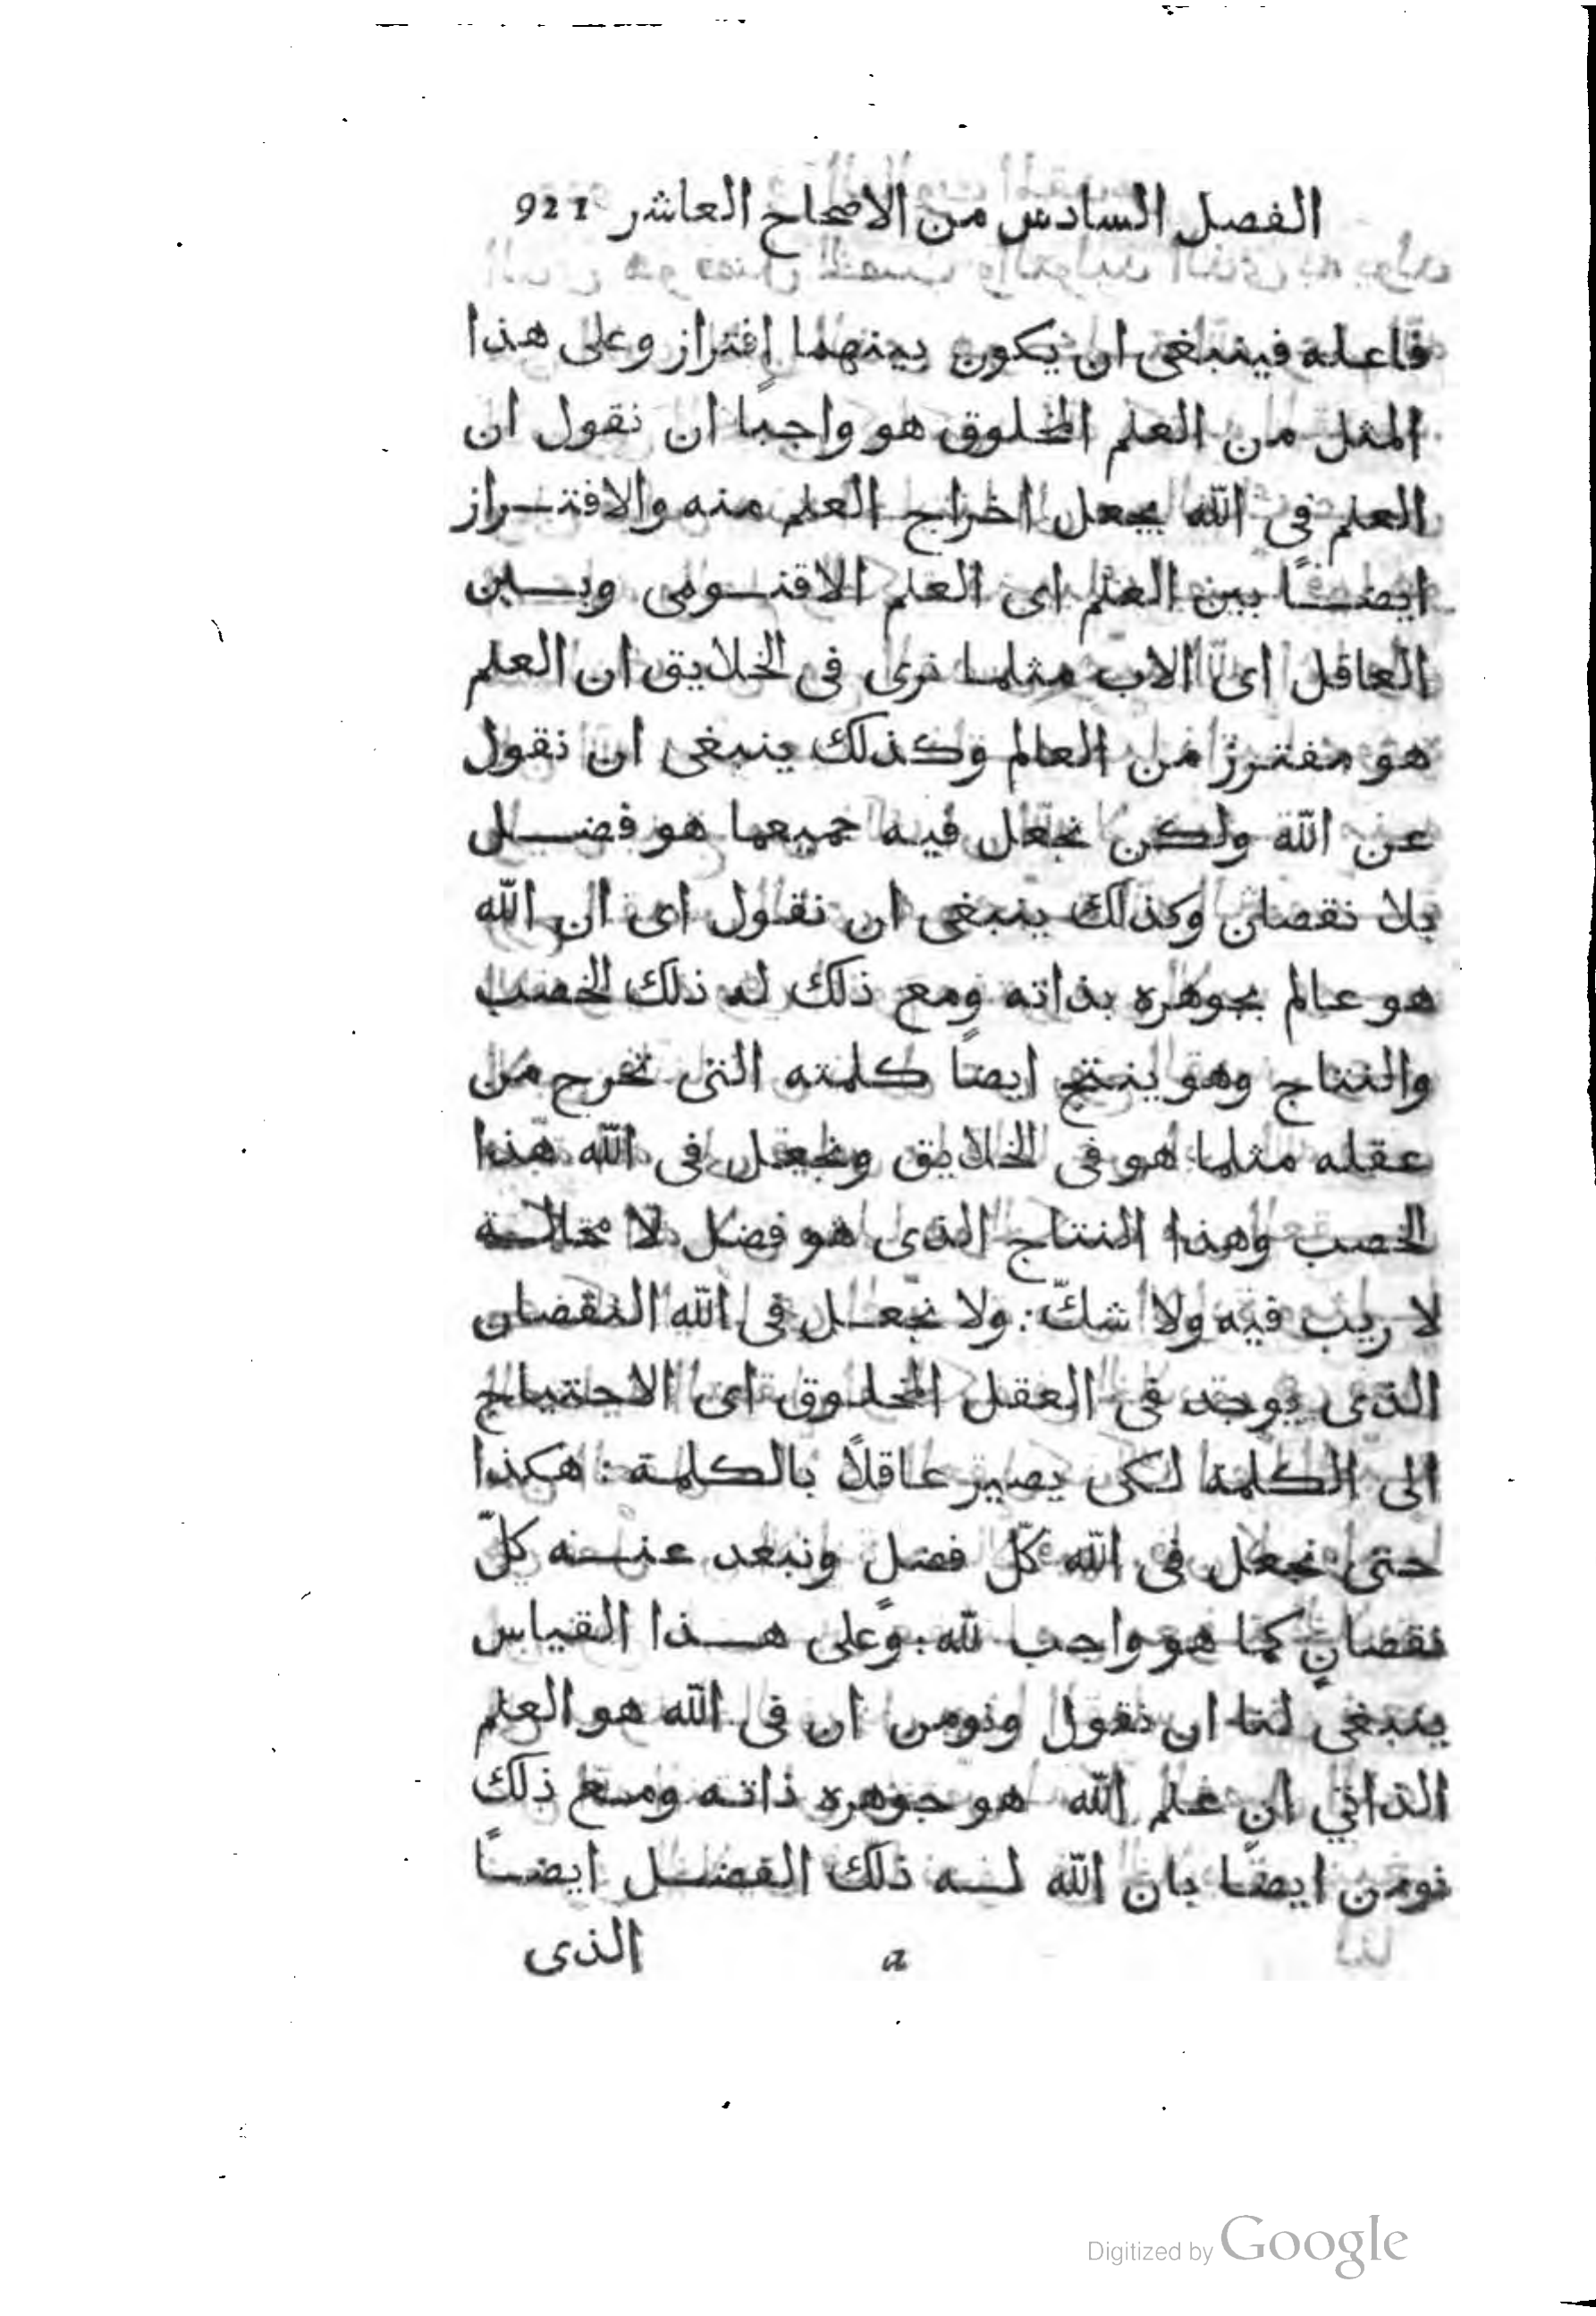 الفصل السادس من الاصحاح العاشر 921
فاعله فينبغى ان يكون بينهما إفتراز وعلى هذا
المثل من العلم المخلوق هو واجبا ان نقول ان
العلم فى الله يجعل اخراج العلم منه والافتراز
ايضًا بين العلم اى العلم الاقنومى وبين
العاقل اى الاب مثلما نرى فى الخلايق ان العلم
هو مفترز من العالم وكذلك ينبغى ان نقول
عن الله ولكن نجعل فيه جميعما هو فضل
بلا نقصان وكذلك ينبغى ان نقول اى ان الله
هو عالم بجوهره بذاته ومع ذلك له ذلك الخصب
والنتاج وهو ينتج ايضًا كلمته التى تخرج من
عقله مثلما هو فى الخلايق ونجعل فى الله هذا
الخصب وهذا النتاج الذى هو فضل لا محالة
لا ريب فيه ولا شكّ: ولا نجعل فى الله النقصان
الذى يوجد فى العقل المخلوق اى الاحتياج
الى الكلمة لكى يصير عاقلاً بالكلمة: هكذا
حتى نجعل فى الله كلّ فضلٍ ونبعد عنه كلّ
نقصانٍ كما هو واجب لله: وعلى هذا القياس
ينبغى لنا ان نقول ونومن ان فى الله هو العلم
الذاتي ان علم الله هو جوهره ذاته ومع ذلك
نومن ايضًا بان الله له ذلك الفضل ايضًا
a الذى
Digitized by Google